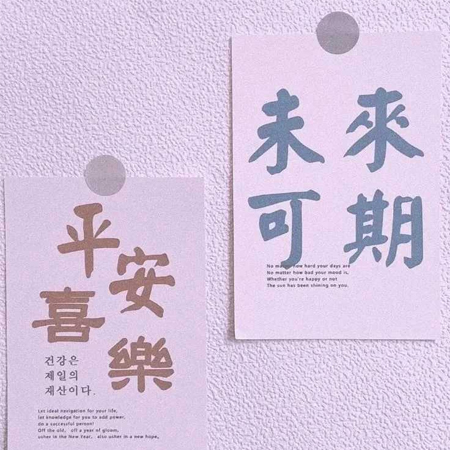 未來
可期
No matter how hard your days are
No matter how bad your mood is,
Whether you're happy or not
The sun has been shining on you.
平安
喜樂
건강은
제일의
재산이다.
Let ideal navigation for your life,
let knowledge for you to add power,
do a successful person!
Off the old, off a year of gloom,
usher in the New Year, also usher in a new hope,